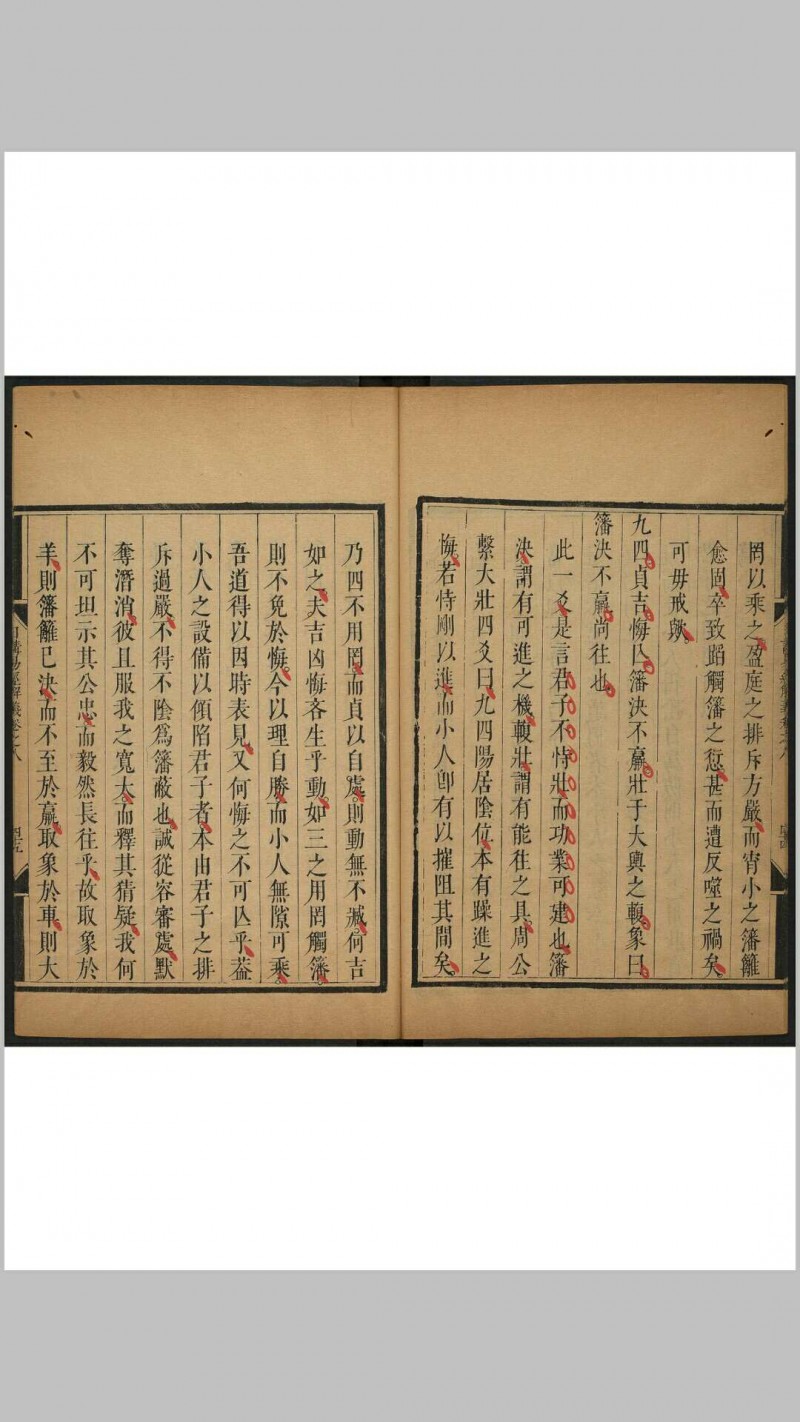 罔以乘之盈庭之排斥方嚴而宵小之籓籬
愈固卒致蹈觸籓之愆甚而遭反噬之禍矣
可毋戒歟
九四貞吉悔亾籓決不羸壯于大輿之輹象曰
籓決不羸尚往也
此一爻是言君子不恃壯而功業可建也籓
決謂有可進之機輹壯謂有能往之具周公
繫大壯四爻曰九四陽居陰位本有躁進之
悔若恃剛以進而小人卽有以摧阻其間矣
乃四不用罔而貞以自處則動無不臧何吉
如之夫吉凶悔吝生乎動如三之用罔觸籓
則不免於悔今以理自勝而小人無隙可乘
吾道得以因時表見又何悔之不可亾乎葢
小人之設備以傾陷君子者本由君子之排
斥過嚴不得不陰爲籓蔽也誠從容審處默
奪潛消彼且服我之寬大而釋其猜疑我何
不可坦示其公忠而毅然長往乎故取象於
羊則籓籬已決而不至於羸取象於車則大